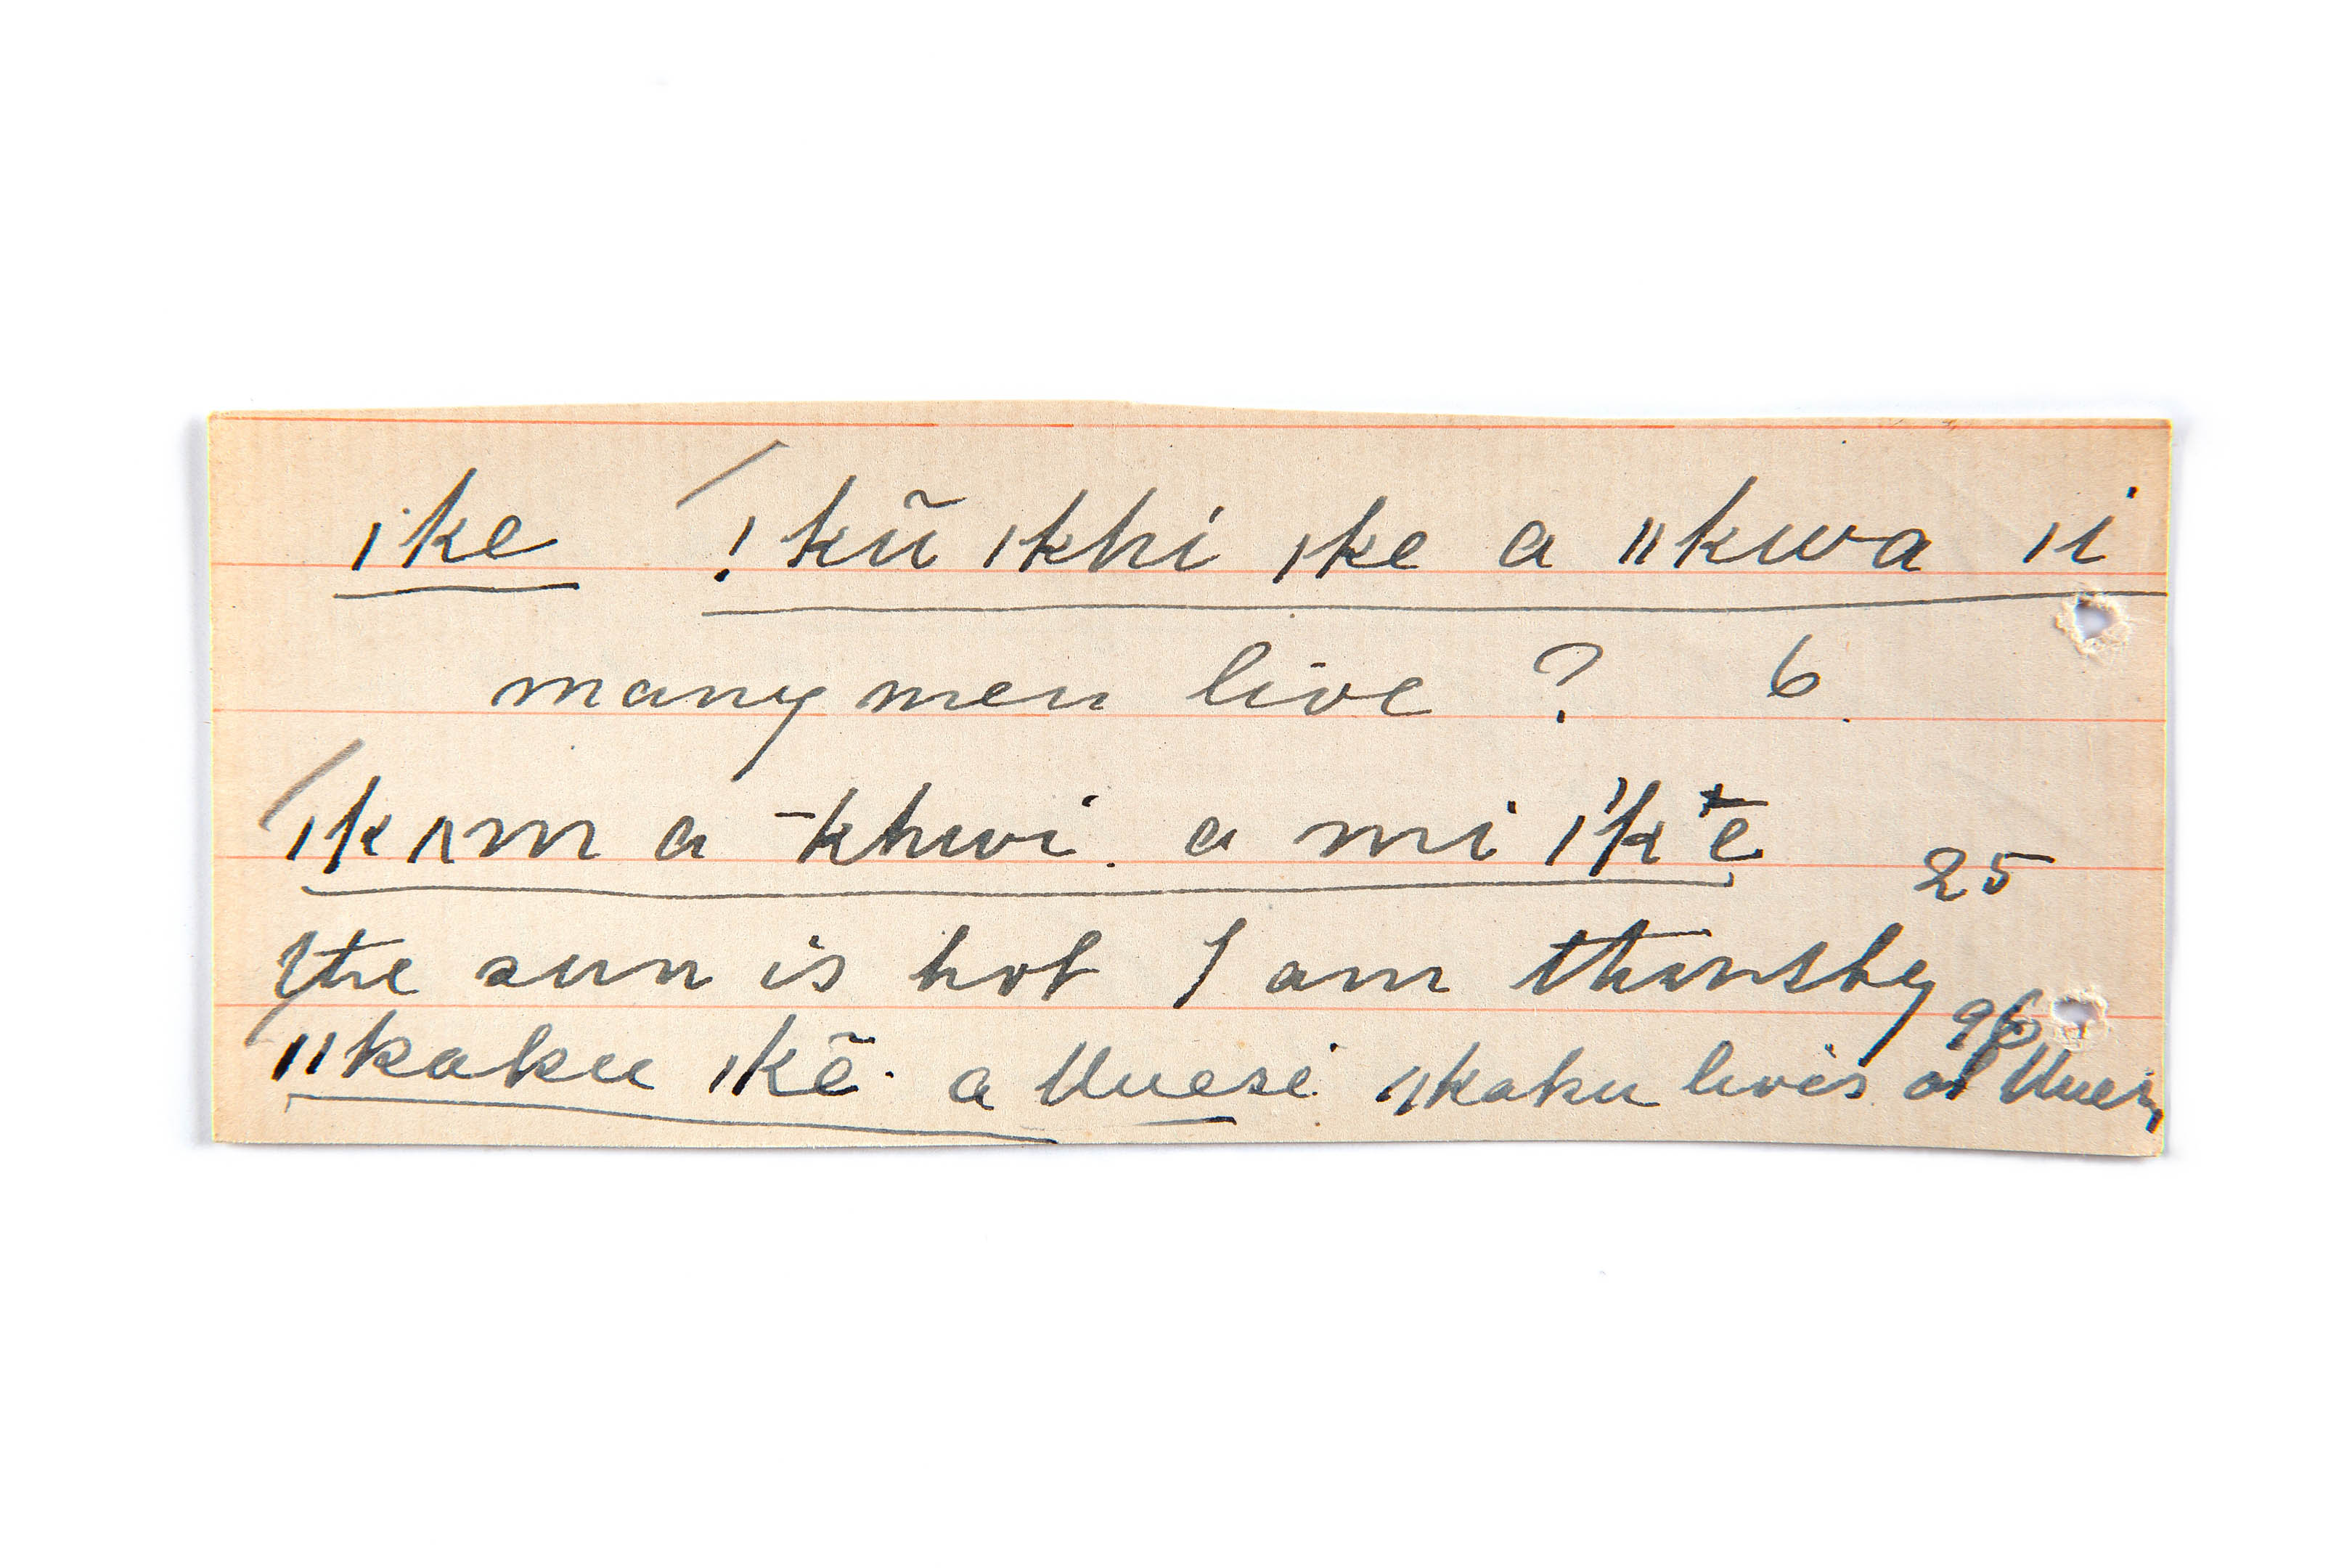 ǀke ǃkũ ǀkhi ǀke a ǁkwa ǀi
many men live ? 6.
ǀkʌm a -khwi. a mi ǀ'k e 25
the sun is hot I am thirsty
96
ǁkaku ǀkẽ. a Uuesi ǁkaku lives at